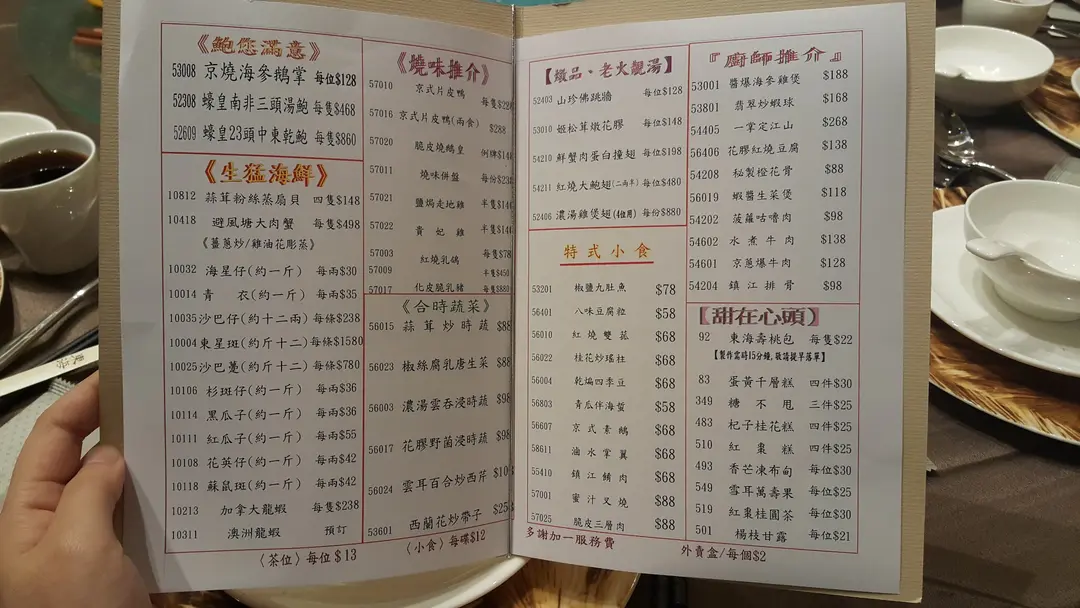 《鮑您滿意》
53008 京燒海參鵝掌 每位$128
52308 蠔皇南非三頭湯鮑 每隻$468
52609 蠔皇23頭中東乾鮑 每隻$860
《生猛海鮮》
10812 蒜茸粉絲蒸扇貝 四隻$148
10418 避風塘大肉蟹 每隻$498
《薑蔥炒/雞油花彫蒸》
10032 海星仔(約一斤) 每兩$30
10014 青衣(約一斤) 每兩$35
10035 沙巴仔(約十二兩) 每條$238
10004 東星斑(約斤十二) 每條$1580
10025 沙巴躉(約斤十二) 每條$780
10106 杉斑仔(約一斤) 每兩$36
10114 黑瓜子(約一斤) 每兩$36
10111 紅瓜子(約一斤) 每兩$55
10108 花英仔(約一斤) 每兩$42
10118 蘇鼠斑(約一斤) 每兩$42
10213 加拿大龍蝦 每隻$238
10311 澳洲龍蝦 預訂
〈茶位〉每位$13
《燒味推介》
57010 京式片皮鴨 每隻$228
57016 京式片皮鴨(兩食) $288
57020 脆皮燒鵝皇 例牌$14
57011 燒味併盤 每份$23
57021 鹽焗走地雞 半隻$14
57022 貴妃雞 半隻$14
57003 紅燒乳鴿 每隻$78
57009 半隻$450
57017 化皮脆乳豬 每隻$880
《合時蔬菜》
56015 蒜茸炒時蔬 $88
56023 椒絲腐乳唐生菜 $88
56003 濃湯雲吞浸時蔬 $98
56017 花膠野菌浸時蔬 $98
56024 雲耳百合炒西芹 $10
53601 西蘭花炒帶子 $25
〈小食〉每碟$12
【燉品、老火靚湯】
52403 山珍佛跳牆 每位$128
53010 姬松茸燉花膠 每位$148
54210 鮮蟹肉蛋白撞翅 每位$198
54211 紅燒大鮑翅(二兩半) 每位$480
52406 濃湯雞煲翅(4位用) 每份$880
特式小食
53201 椒鹽九肚魚 $78
56401 八味豆腐粒 $58
56010 紅燒雙菇 $68
56022 桂花炒瑤柱 $68
56004 乾煸四季豆 $68
56803 青瓜伴海蜇 $58
56607 京式素鵝 $68
58611 滷水掌翼 $68
55410 鎮江餚肉 $68
57001 蜜汁叉燒 $88
57025 脆皮三層肉 $88
多謝加一服務費
『廚師推介』
53001 醬爆海參雞煲 $188
53801 翡翠炒蝦球 $168
54405 一掌定江山 $268
56406 花膠紅燒豆腐 $138
54208 秘製橙花骨 $88
56019 蝦醬生菜煲 $118
54202 菠蘿咕嚕肉 $98
54602 水煮牛肉 $138
54601 京蔥爆牛肉 $128
54204 鎮江排骨 $98
【甜在心頭】
92 東海壽桃包 每隻$22
【製作需時15分鐘,敬請提早落單】
83 蛋黃千層糕 四件$30
349 糖不甩 三件$25
483 杞子桂花糕 四件$25
510 紅棗糕 四件$25
493 香芒凍布甸 每位$30
549 雪耳萬壽果 每位$25
519 紅棗桂圓茶 每位$30
501 楊枝甘露 每位$21
外賣盒/每個$2